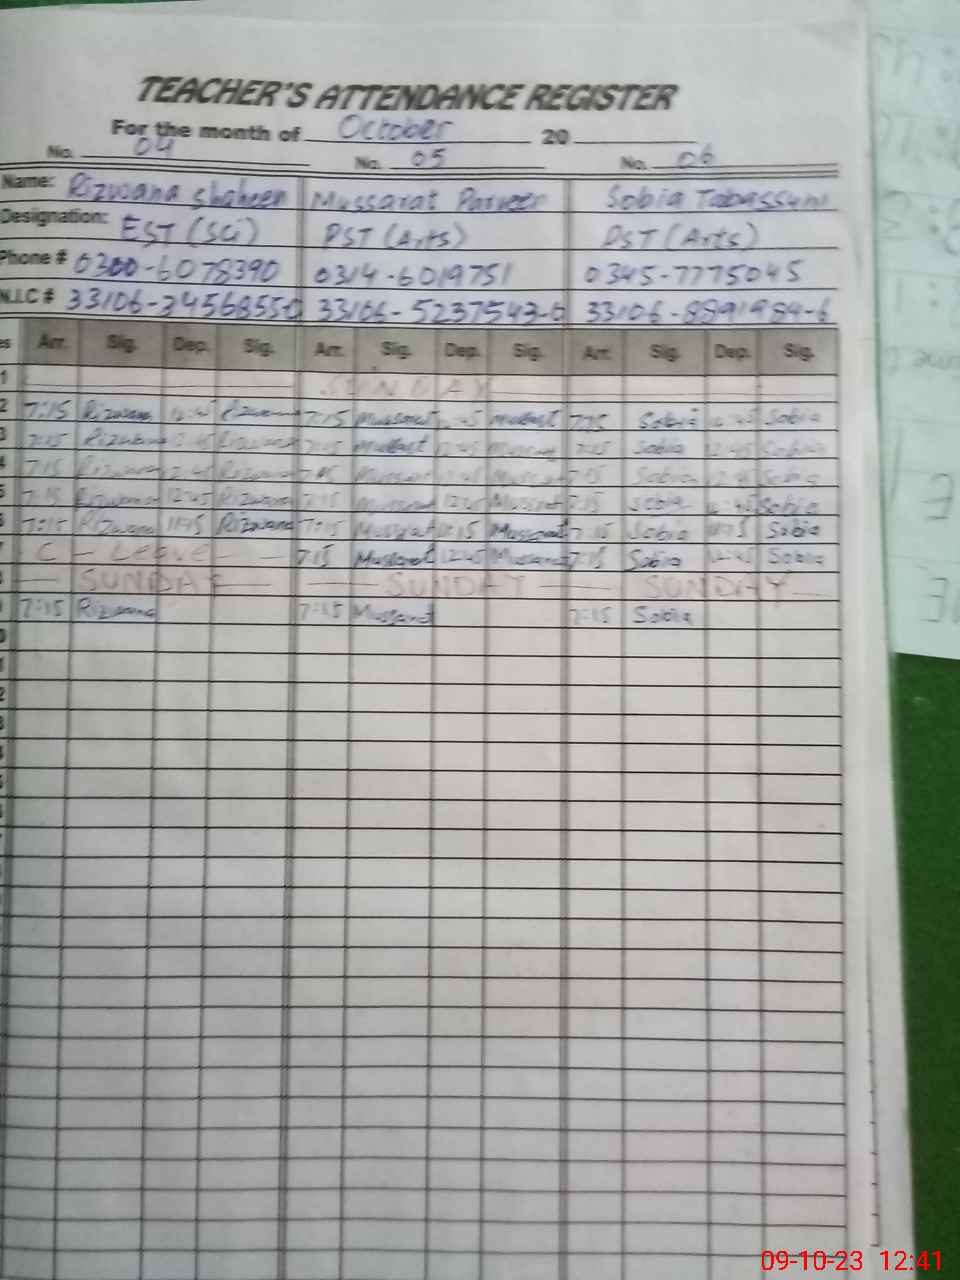 TEACHER'S ATTENDANCE REGISTER
For the month of October 20
No. 04 No. 05 No. 06
Name: Rizwana Shaheen Mussarat Parveen Sobia Tabassum
Designation: EST (Sci) PST (Arts) PST (Arts)
Phone # 0300-6078390 0314-6019751 0345-7775045
N.I.C # 33106-3456855-0 33106-5237543-0 33106-8891984-6
es Arr. Sig. Dep. Sig. Arr. Sig. Dep. Sig. Arr. Sig. Dep. Sig.
1 SUNDAY
2 7:15 Rizwana Rizwana 7:15 Mussarat Mussarat 7:15 Sobia Sobia
3 7:15 Rizwana 12:45 Rizwana 7:15 Mussarat 12:45 7:15 Sobia 12:45 Sobia
4 7:15 Rizwana 12:45 Rizwana 7:15 Mussarat 12:45 Mussarat 7:15 Sobia 12:45 Sobia
5 7:15 Rizwana 12:45 Rizwana 7:15 Mussarat 12:45 Mussrat 7:15 Sobia 12:45 Sobia
6 7:15 Rizwana 11:15 Rizwana 7:15 Mussrat 11:15 Mussarat 7:15 Sobia 11:15 Sobia
7 C - Leave 7:15 Mussarat 12:45 Mussarat 7:15 Sobia 12:45 Sobia
SUNDAY SUNDAY SUNDAY
7:15 Rizwana 7:15 Mussarat 7:15 Sobia
09-10-23 12:41